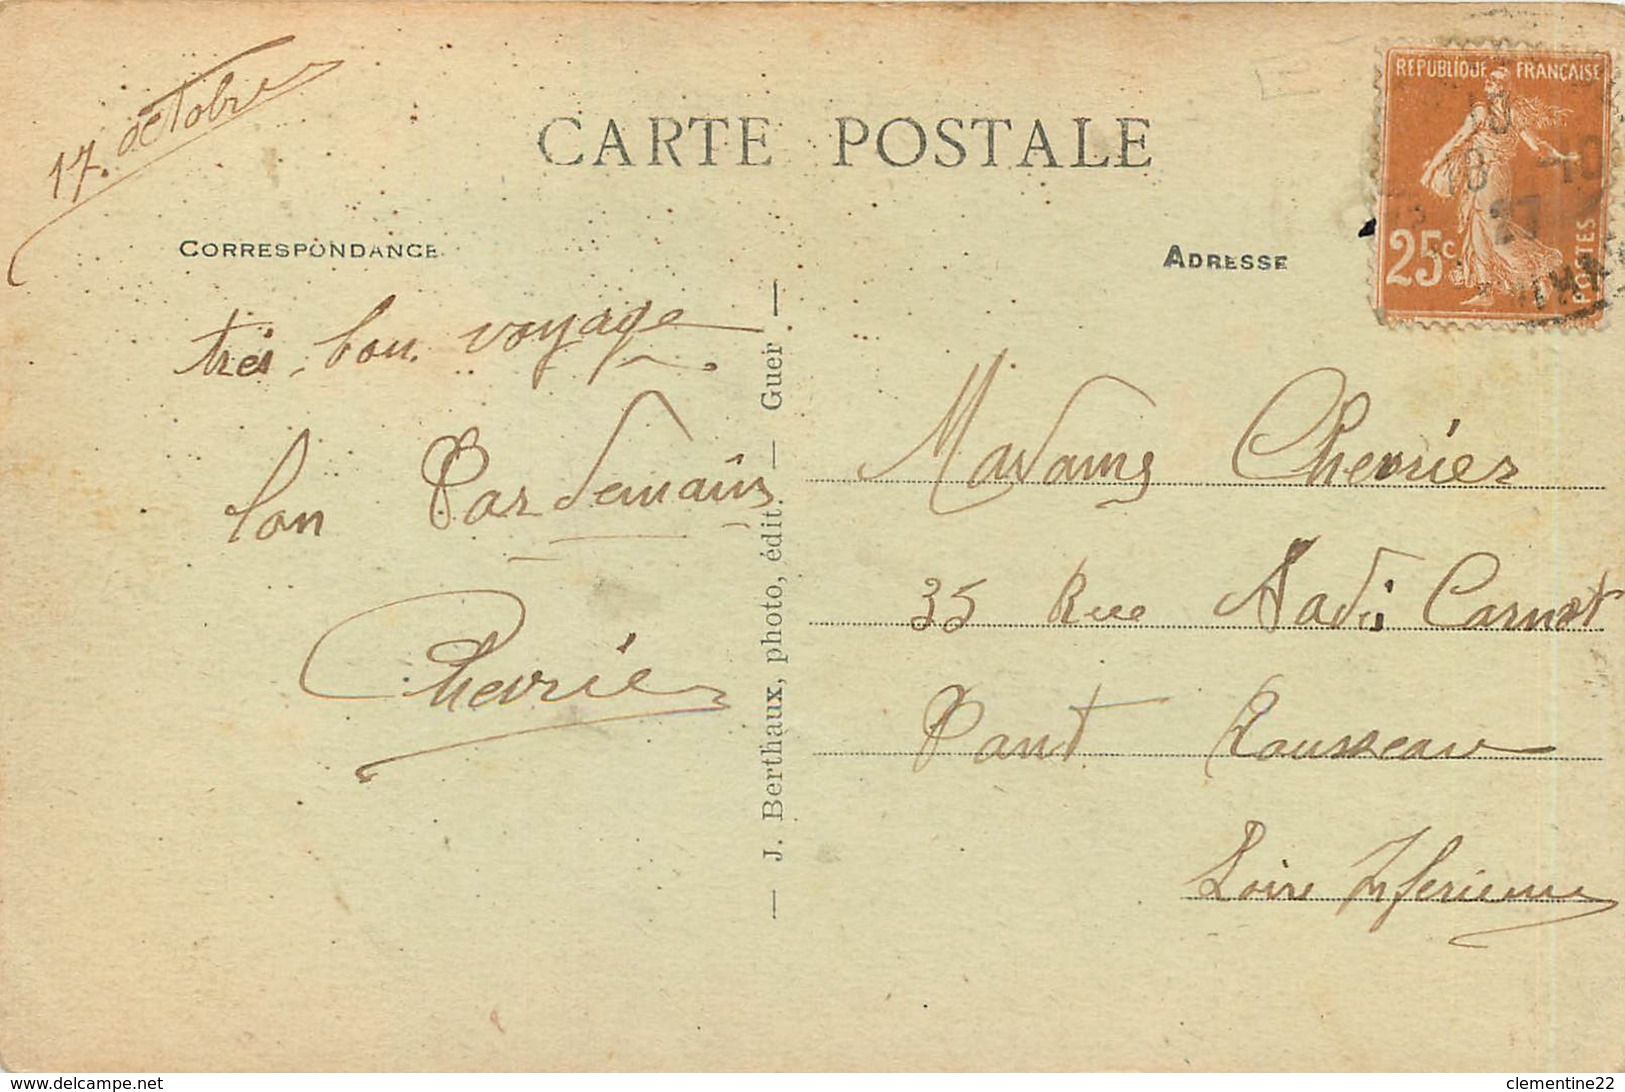 17. octobre
CARTE POSTALE
CORRESPONDANCE
ADRESSE
REPUBLIQUE FRANÇAISE
25c
POSTES
10
18 -10
27
très bon voyage
Demain
Chevrie
— J. Berthaux, photo, édit. — Guer —
Madame Chevrier
35 Rue Sadi Carnot
Pont Rousseau
Loire Inferieure
www.delcampe.net
clementine22